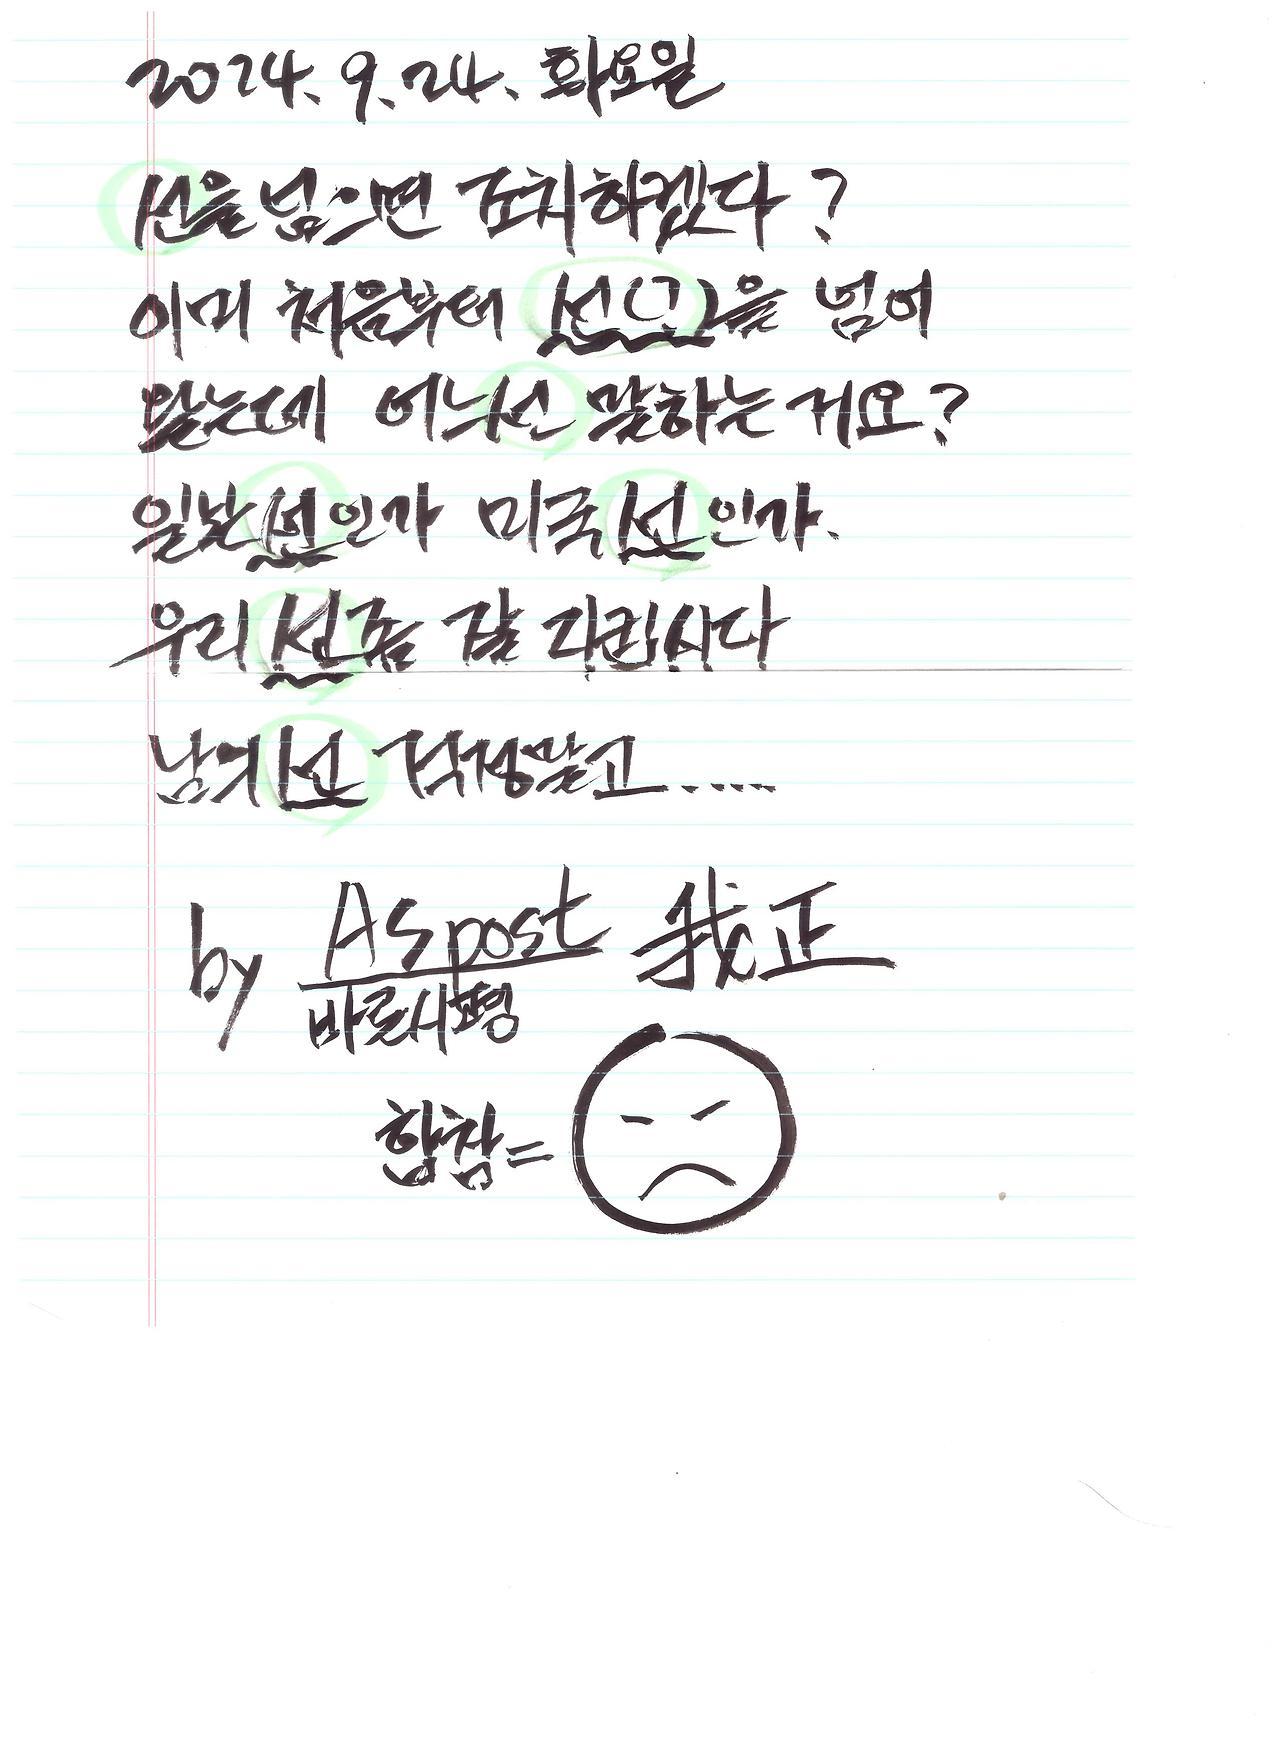 2024. 9. 24. 화요일
선을 넘으면 조치하겠다?
이미 처음부터 선 을 넘어
왔는데 어느선 말하는거요?
일본선인가 미국선인가.
우리선좀 잘 다립시다
남의선 걱정말고.....
by As post 我正
바로시평
합참=